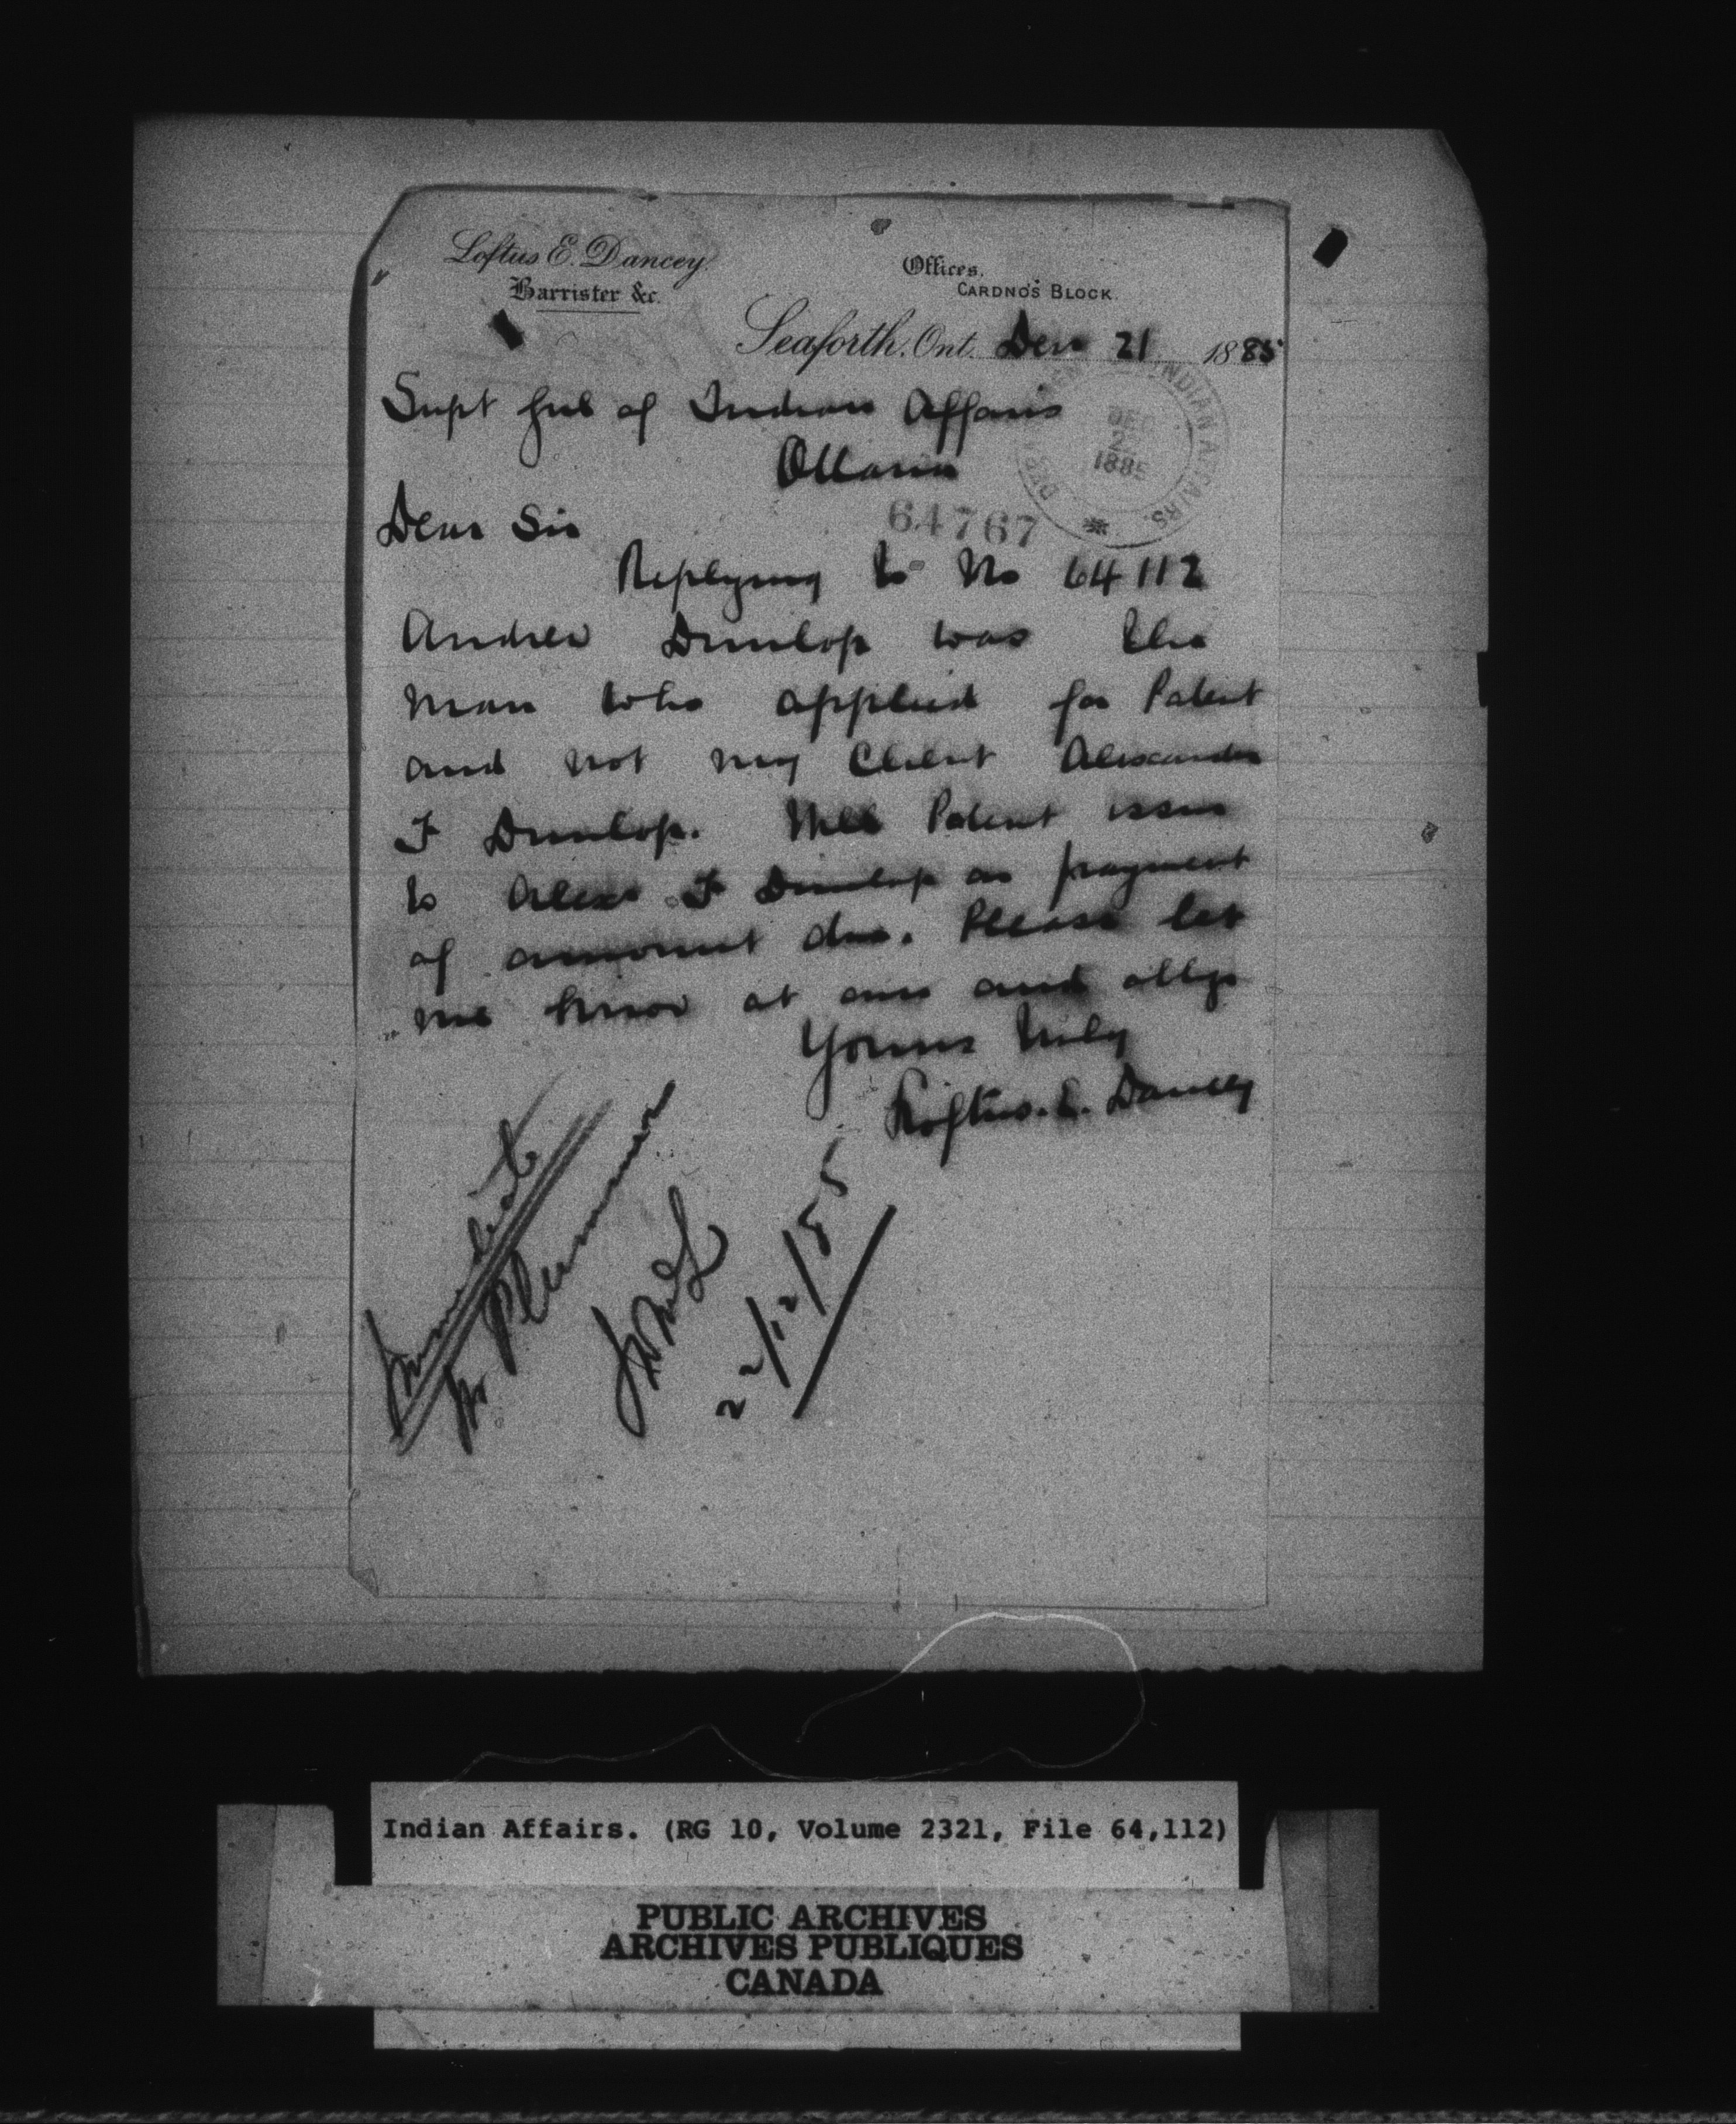 Loftus E. Dancey.
Barrister &c.
Offices.
CARDNO'S BLOCK.
Seaforth. Ont. Dec 21 1885
Supt Genl of Indian Affairs
Ottawa
DEPARTMENT INDIAN AFFAIRS.
DEC
1885
Dear Sir
64767
Replying to No 64112
Andrew Dunlop was the
man who applied for Patent
and not my Client Alexander
F Dunlop. Will Patent issue
to Alexr F Dunlop on payment
of amount due. Please let
me know at once and oblige
Yours truly
Loftus. E. Dancey
Immediate
Mr Plummer
22/12/85
Indian Affairs. (RG 10, Volume 2321, File 64,112)
PUBLIC ARCHIVES
ARCHIVES PUBLIQUES
CANADA